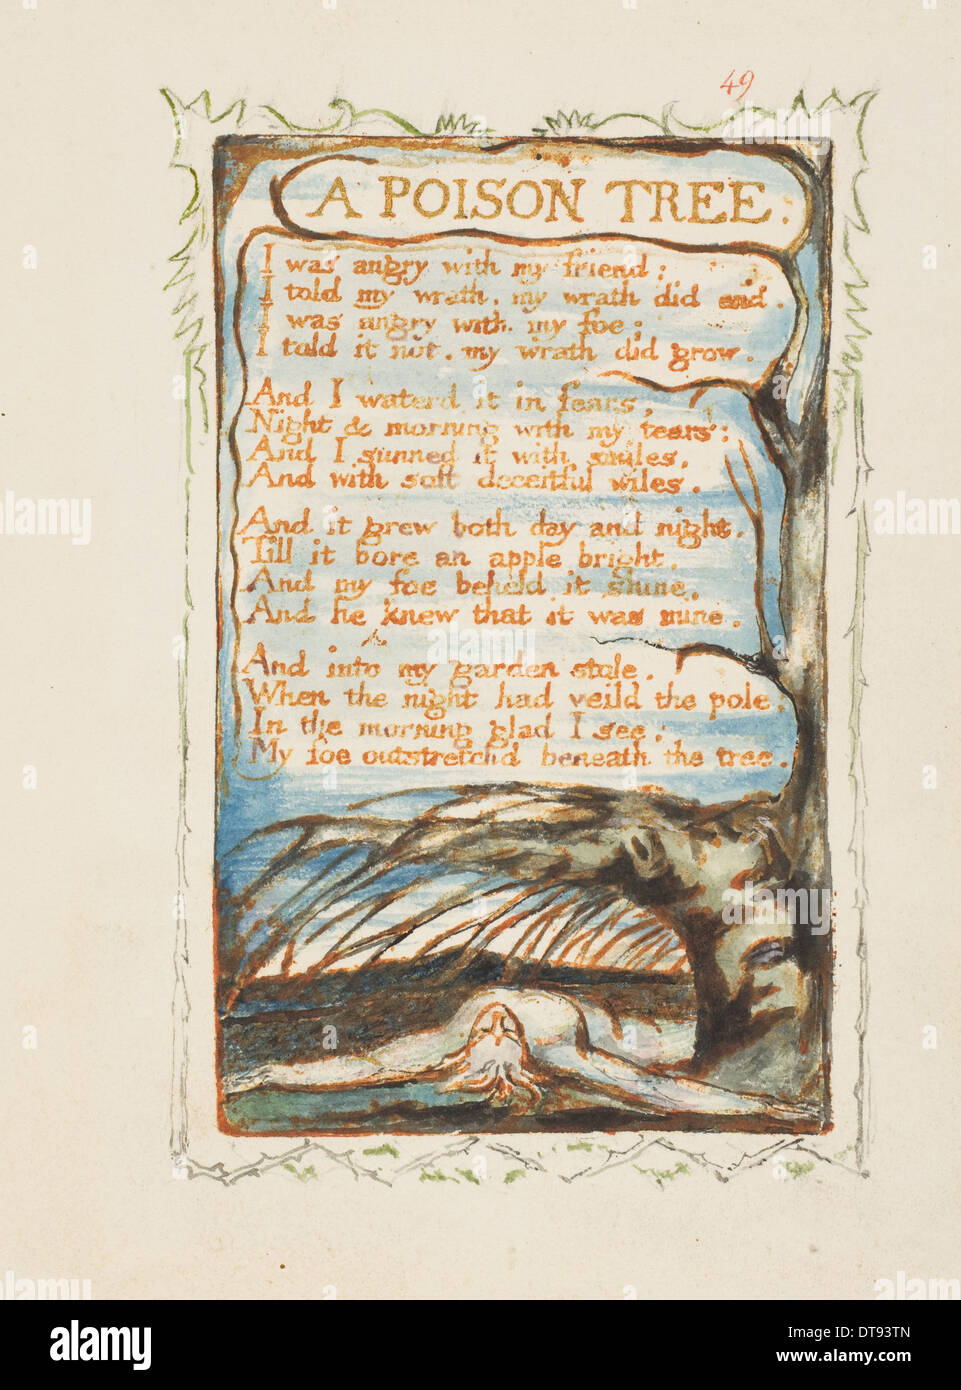 49
A POISON TREE.
I was angry with my friend;
I told my wrath, my wrath did end.
I was angry with my foe:
I told it not, my wrath did grow.
And I waterd it in fears,
Night & morning with my tears:
And I sunned it with smiles,
And with soft deceitful wiles.
And it grew both day and night,
Till it bore an apple bright.
And my foe beheld it shine,
And he knew that it was mine.
And into my garden stole,
When the night had veild the pole;
In the morning glad I see,
My foe outstretchd beneath the tree.
alamy
alamy
Image ID: DT93TN
www.alamy.com